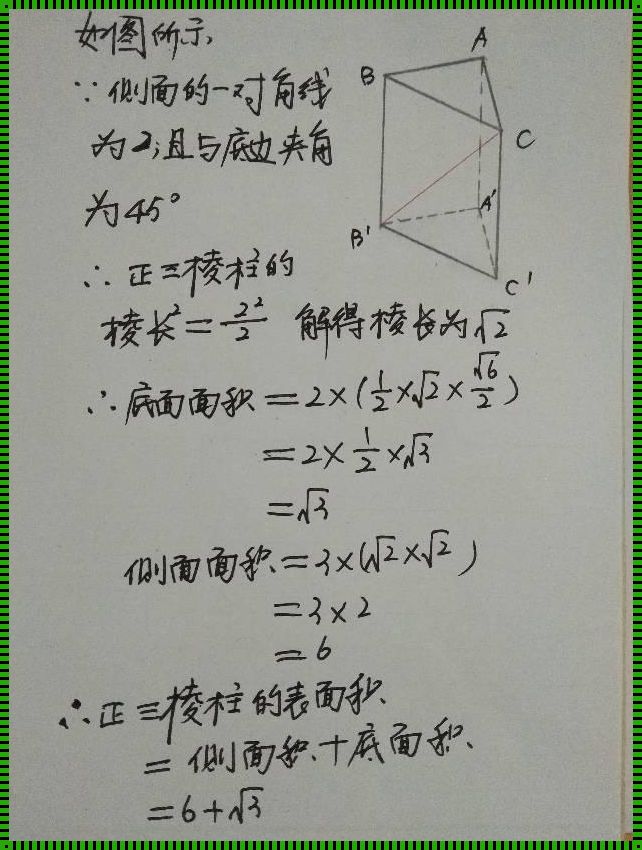 如图所示,
∵侧面的一对角线
为2,且与底边夹角
为45°
∴正三棱柱的
棱长²=2²/2 解得棱长为√2
∴底面面积=2×(1/2×√2×√6/2)
=2×1/2×√3
=√3
侧面面积=3×(√2×√2)
=3×2
=6
∴正三棱柱的表面积
=侧面积+底面积
=6+√3
A
B
C
A'
B'
C'